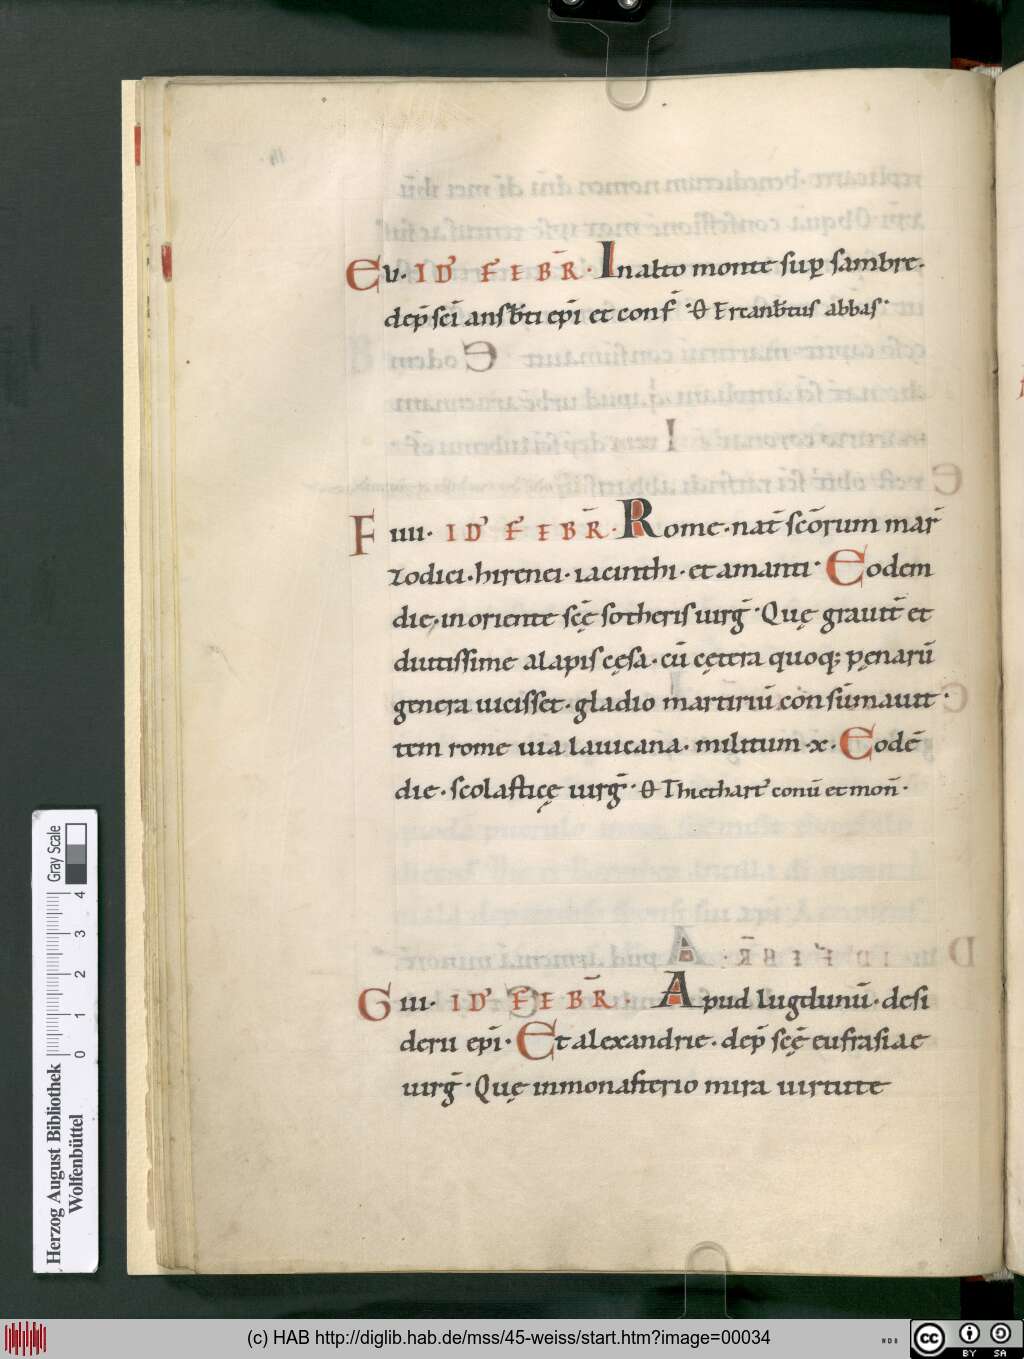 E v. ID' FEBR̄. In alto monte sup̄ sambre.
dep̄ sc̄i ansb̄ti ep̄i et conf̄. Ꝋ Ercanb̄tus abbas.
F IIII. ID' FEBR̄. Rome. nat̄ sc̄orum mar̄
zodici. hirenei. iacinthi. et amanti. Eodem
die. in oriente sc̄ę sotheris uirḡ. Quę grauit̄ et
diutissime alapis cęsa. cū cętera quoq; pęnarū
genera uicisset. gladio martiriū consūmauit.
Item rome uia lauicana. militum .x. Eodē
die. scolasticę uirḡ. Ꝋ Thiethart' conū et mon̄.
G III. ID' FEBR̄. Apud lugdunū. desi
derii ep̄i. Et alexandrie. dep̄ sc̄ę eufrasiae
uirḡ. Quę inmonasterio mira uirtute
Herzog August Bibliothek
Wolfenbüttel
0 1 2 3 4
Gray Scale
(c) HAB http://diglib.hab.de/mss/45-weiss/start.htm?image=00034
cc BY SA